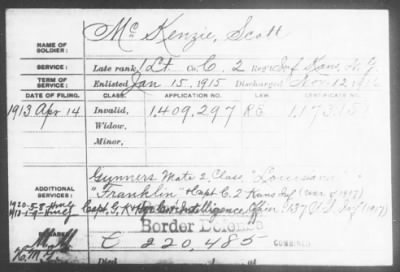 Mc Kenzie, Scott
NAME OF SOLDIER:
SERVICE: Late rank, 1 Lt. Co. C, 2 Reg't Inf Kans. N.G.
TERM OF SERVICE: Enlisted Jan 15, 1915 Discharged Nov 12, 1916
DATE OF FILING. CLASS. APPLICATION NO. LAW. CERTIFICATE NO.
1913 Apr 14 Invalid, 1,409,297 1,173,151
Widow,
Minor,
Gunners Mate 2, Class, "Louisiana"
"Franklin" Capt C. 2 Kans Inf (War of 1917)
Capt. G, Intelligence Officer 137 U.S. Inf (1917)
Border Defense
C 220,485 COMBINED
Died